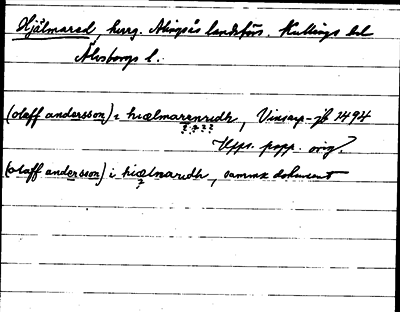 Hjälmared, herrg. Alingsås landsförs. Kullings hd
Älvsborgs l.
(olaff andersson) i hiælmarenridh, Vinsarp-jb 1494
? ? ? ?
Upps. papp. orig.
(olaff andersson) i hiælmaridh, samma dokument
?